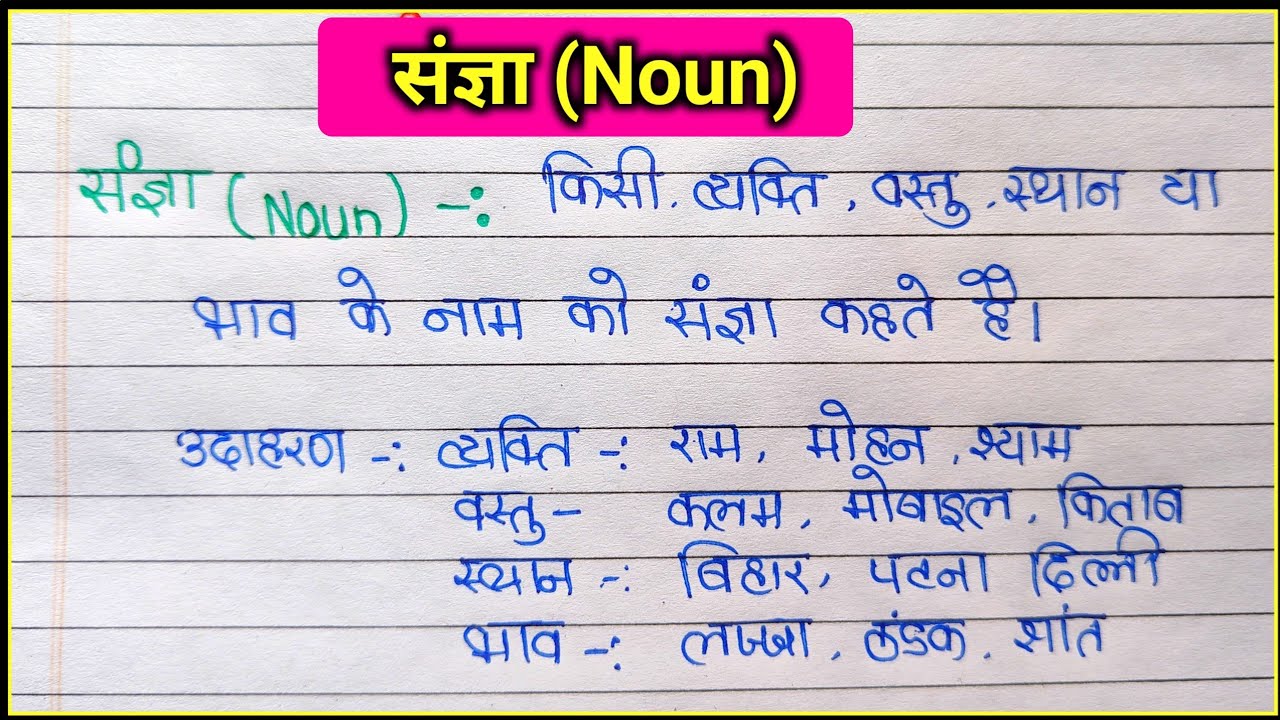 संज्ञा (Noun)
संज्ञा (Noun) -: किसी, व्यक्ति, वस्तु, स्थान या
भाव के नाम को संज्ञा कहते है।
उदाहरण -: व्यक्ति -: राम, मोहन, श्याम
वस्तु - कलम, मोबाइल, किताब
स्थान -: बिहार, पटना दिल्ली
भाव -: लज्जा, ठंडक, शांत